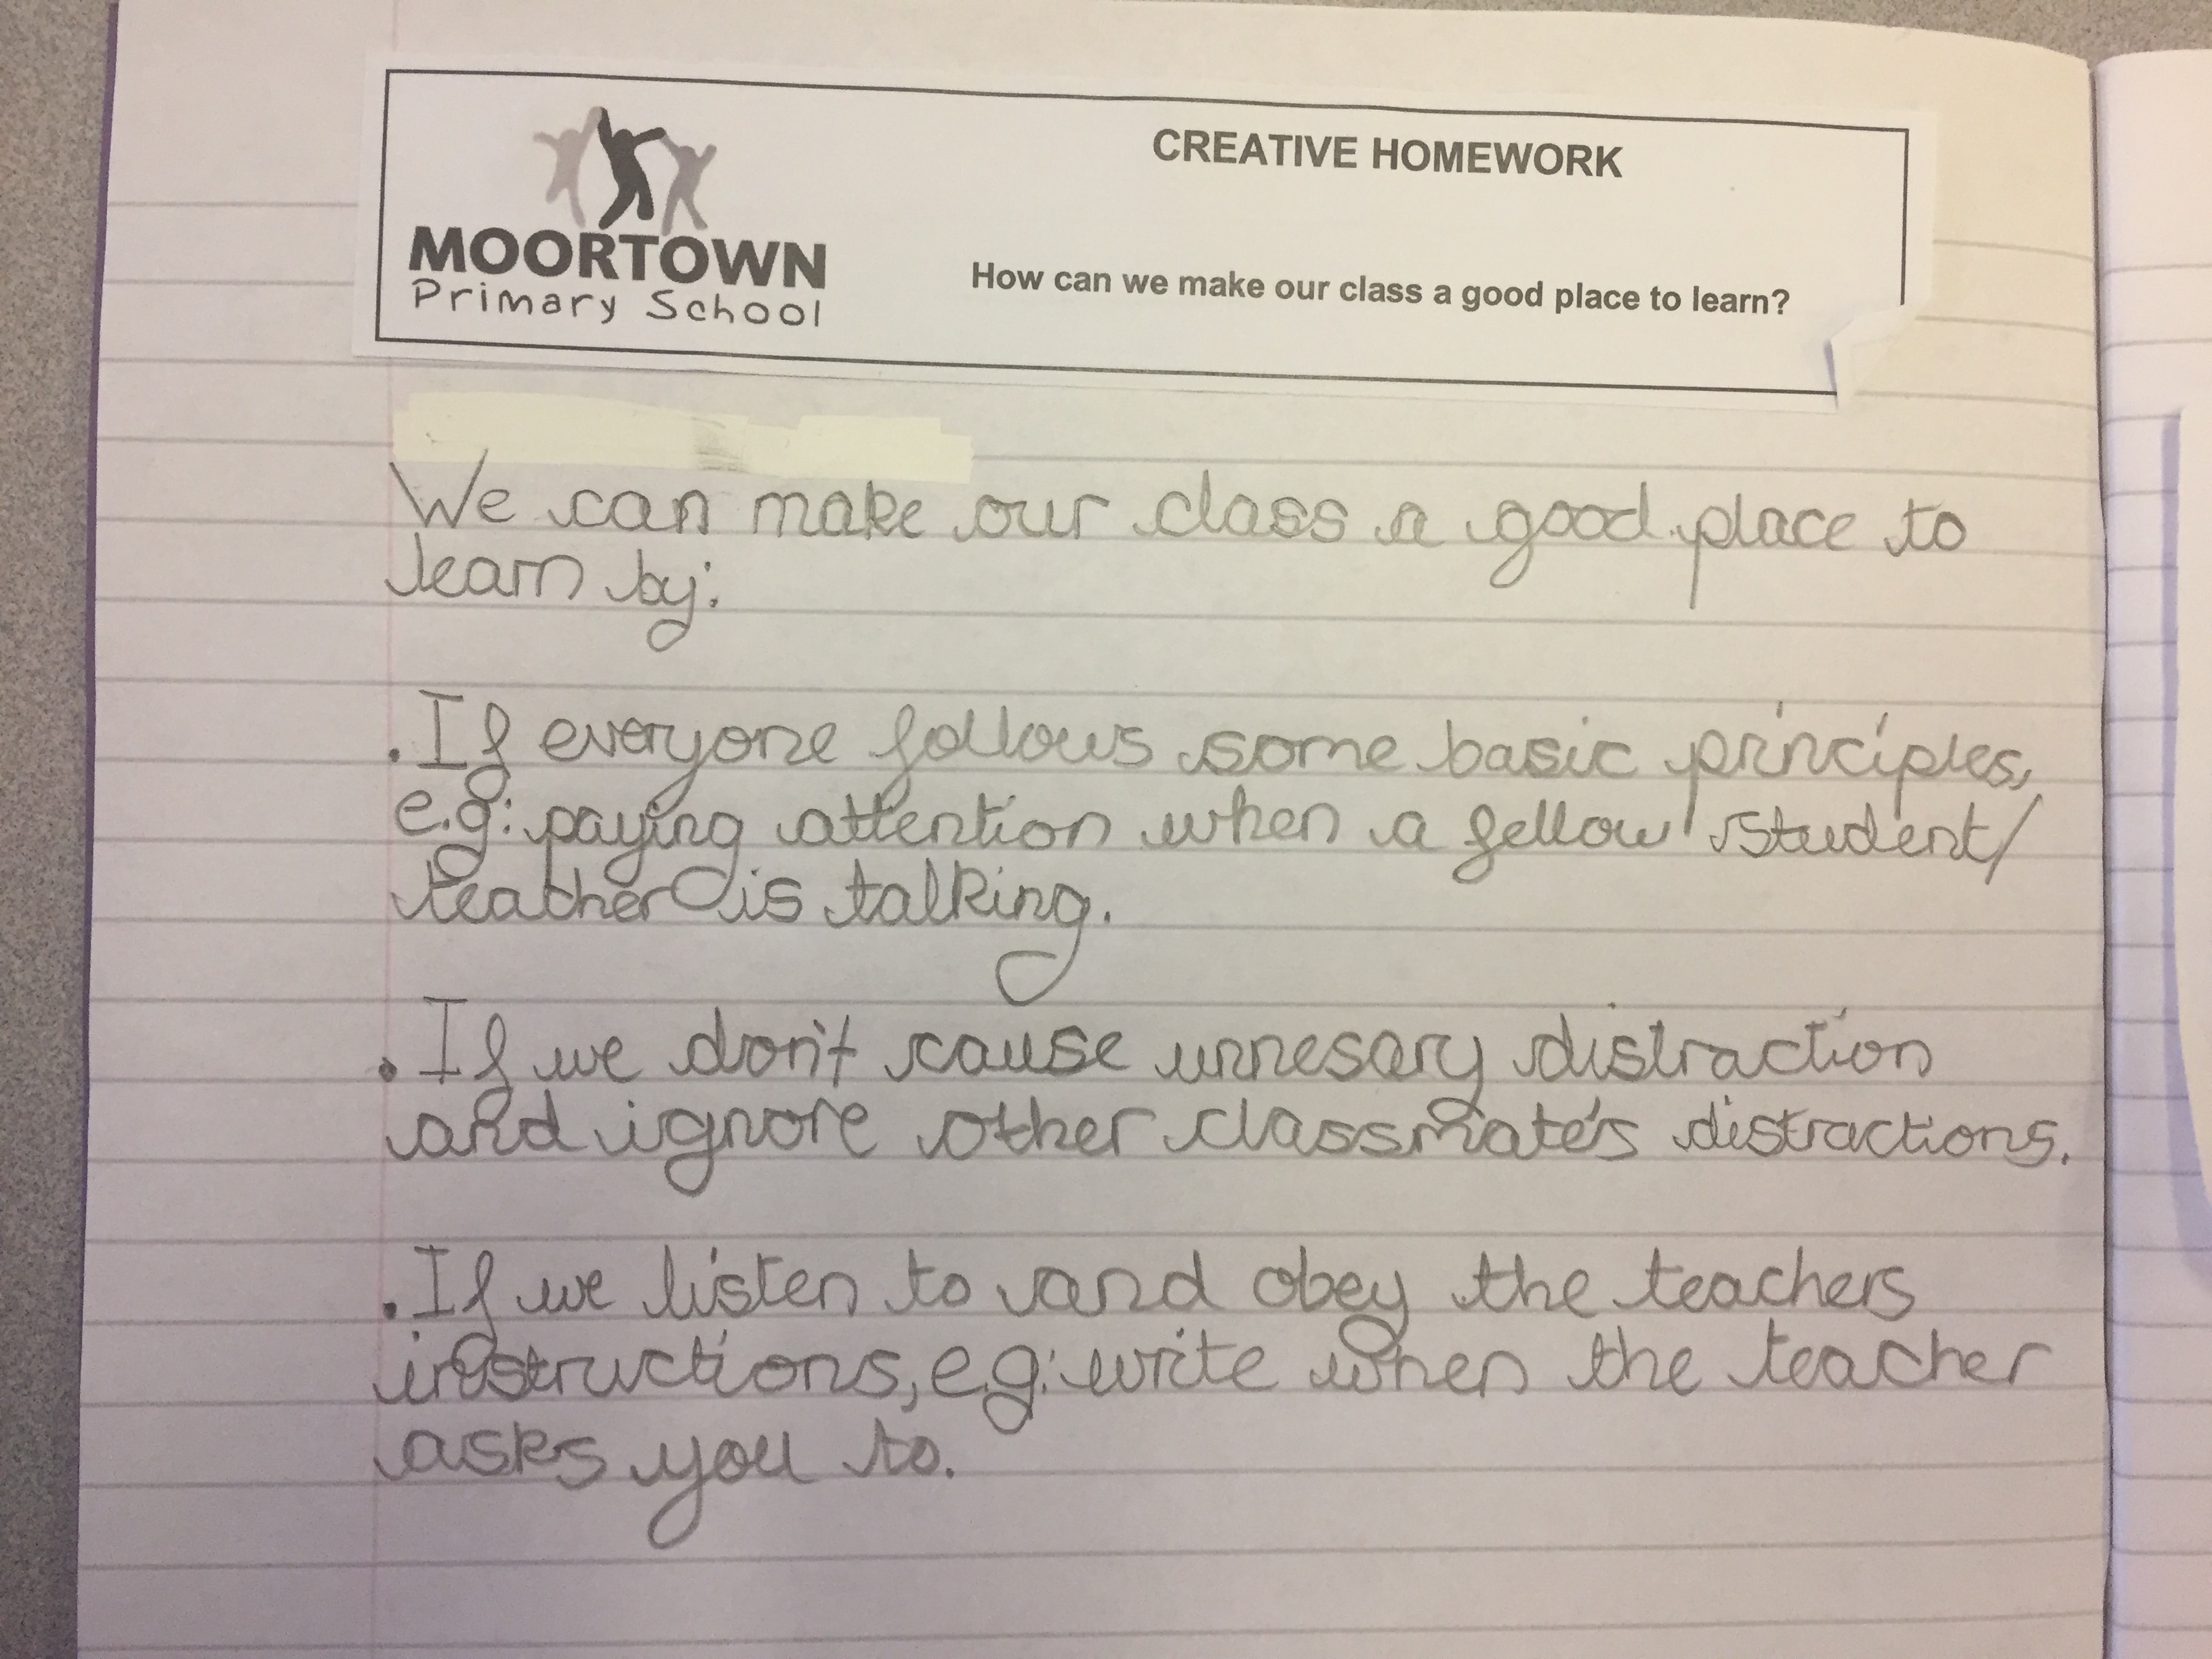 CREATIVE HOMEWORK
MOORTOWN
Primary School
How can we make our class a good place to learn?
We can make our class a good place to
learn by:
. If everyone follows some basic principles,
e.g: paying attention when a fellow student/
teacher is talking.
. If we don't cause unnesary distraction
and ignore other classmate's distractions.
. If we listen to and obey the teachers
instructions, e.g: write when the teacher
asks you to.